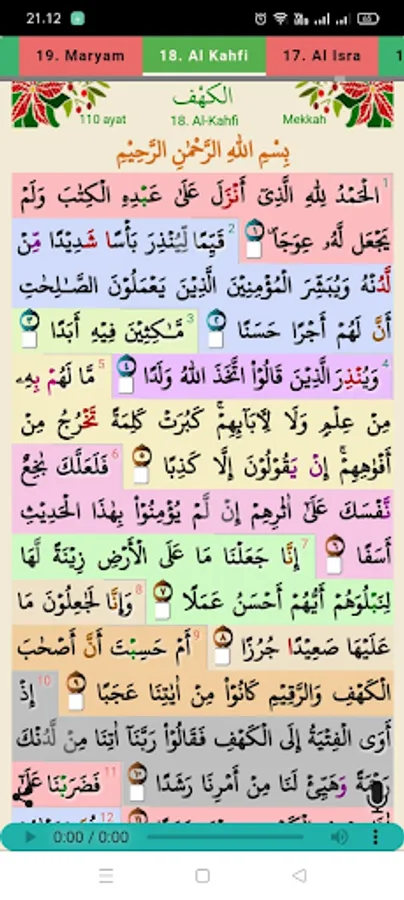 21.12
19. Maryam 18. Al Kahfi 17. Al Isra 1
الكهف
110 ayat 18. Al-Kahfi Mekkah
بِسْمِ اللهِ الرَّحْمٰنِ الرَّحِيْمِ
1 اَلْحَمْدُ لِلّٰهِ الَّذِيْٓ اَنْزَلَ عَلٰى عَبْدِهِ الْكِتٰبَ وَلَمْ
يَجْعَلْ لَّهٗ عِوَجًا ۜ ١ 2 قَيِّمًا لِّيُنْذِرَ بَأْسًا شَدِيْدًا مِّنْ
لَّدُنْهُ وَيُبَشِّرَ الْمُؤْمِنِيْنَ الَّذِيْنَ يَعْمَلُوْنَ الصّٰلِحٰتِ
اَنَّ لَهُمْ اَجْرًا حَسَنًا ٢ 3 مَّاكِثِيْنَ فِيْهِ اَبَدًا ٣
4 وَّيُنْذِرَ الَّذِيْنَ قَالُوا اتَّخَذَ اللهُ وَلَدًا ٤ 5 مَا لَهُمْ بِهٖ
مِنْ عِلْمٍ وَّلَا لِاٰبَاۤىِٕهِمْۗ كَبُرَتْ كَلِمَةً تَخْرُجُ مِنْ
اَفْوَاهِهِمْۗ اِنْ يَّقُوْلُوْنَ اِلَّا كَذِبًا ٥ 6 فَلَعَلَّكَ بَاخِعٌ
نَّفْسَكَ عَلٰٓى اٰثَارِهِمْ اِنْ لَّمْ يُؤْمِنُوْا بِهٰذَا الْحَدِيْثِ
اَسَفًا ٦ 7 اِنَّا جَعَلْنَا مَا عَلَى الْاَرْضِ زِيْنَةً لَّهَا
لِنَبْلُوَهُمْ اَيُّهُمْ اَحْسَنُ عَمَلًا ٧ 8 وَاِنَّا لَجَاعِلُوْنَ مَا
عَلَيْهَا صَعِيْدًا جُرُزًا ٨ 9 اَمْ حَسِبْتَ اَنَّ اَصْحٰبَ
الْكَهْفِ وَالرَّقِيْمِ كَانُوْا مِنْ اٰيٰتِنَا عَجَبًا ٩ 10 اِذْ
اَوَى الْفِتْيَةُ اِلَى الْكَهْفِ فَقَالُوْا رَبَّنَآ اٰتِنَا مِنْ لَّدُنْكَ
رَحْمَةً وَّهَيِّئْ لَنَا مِنْ اَمْرِنَا رَشَدًا ١٠ 11 فَضَرَبْنَا عَلٰٓى
12
0:00 / 0:00